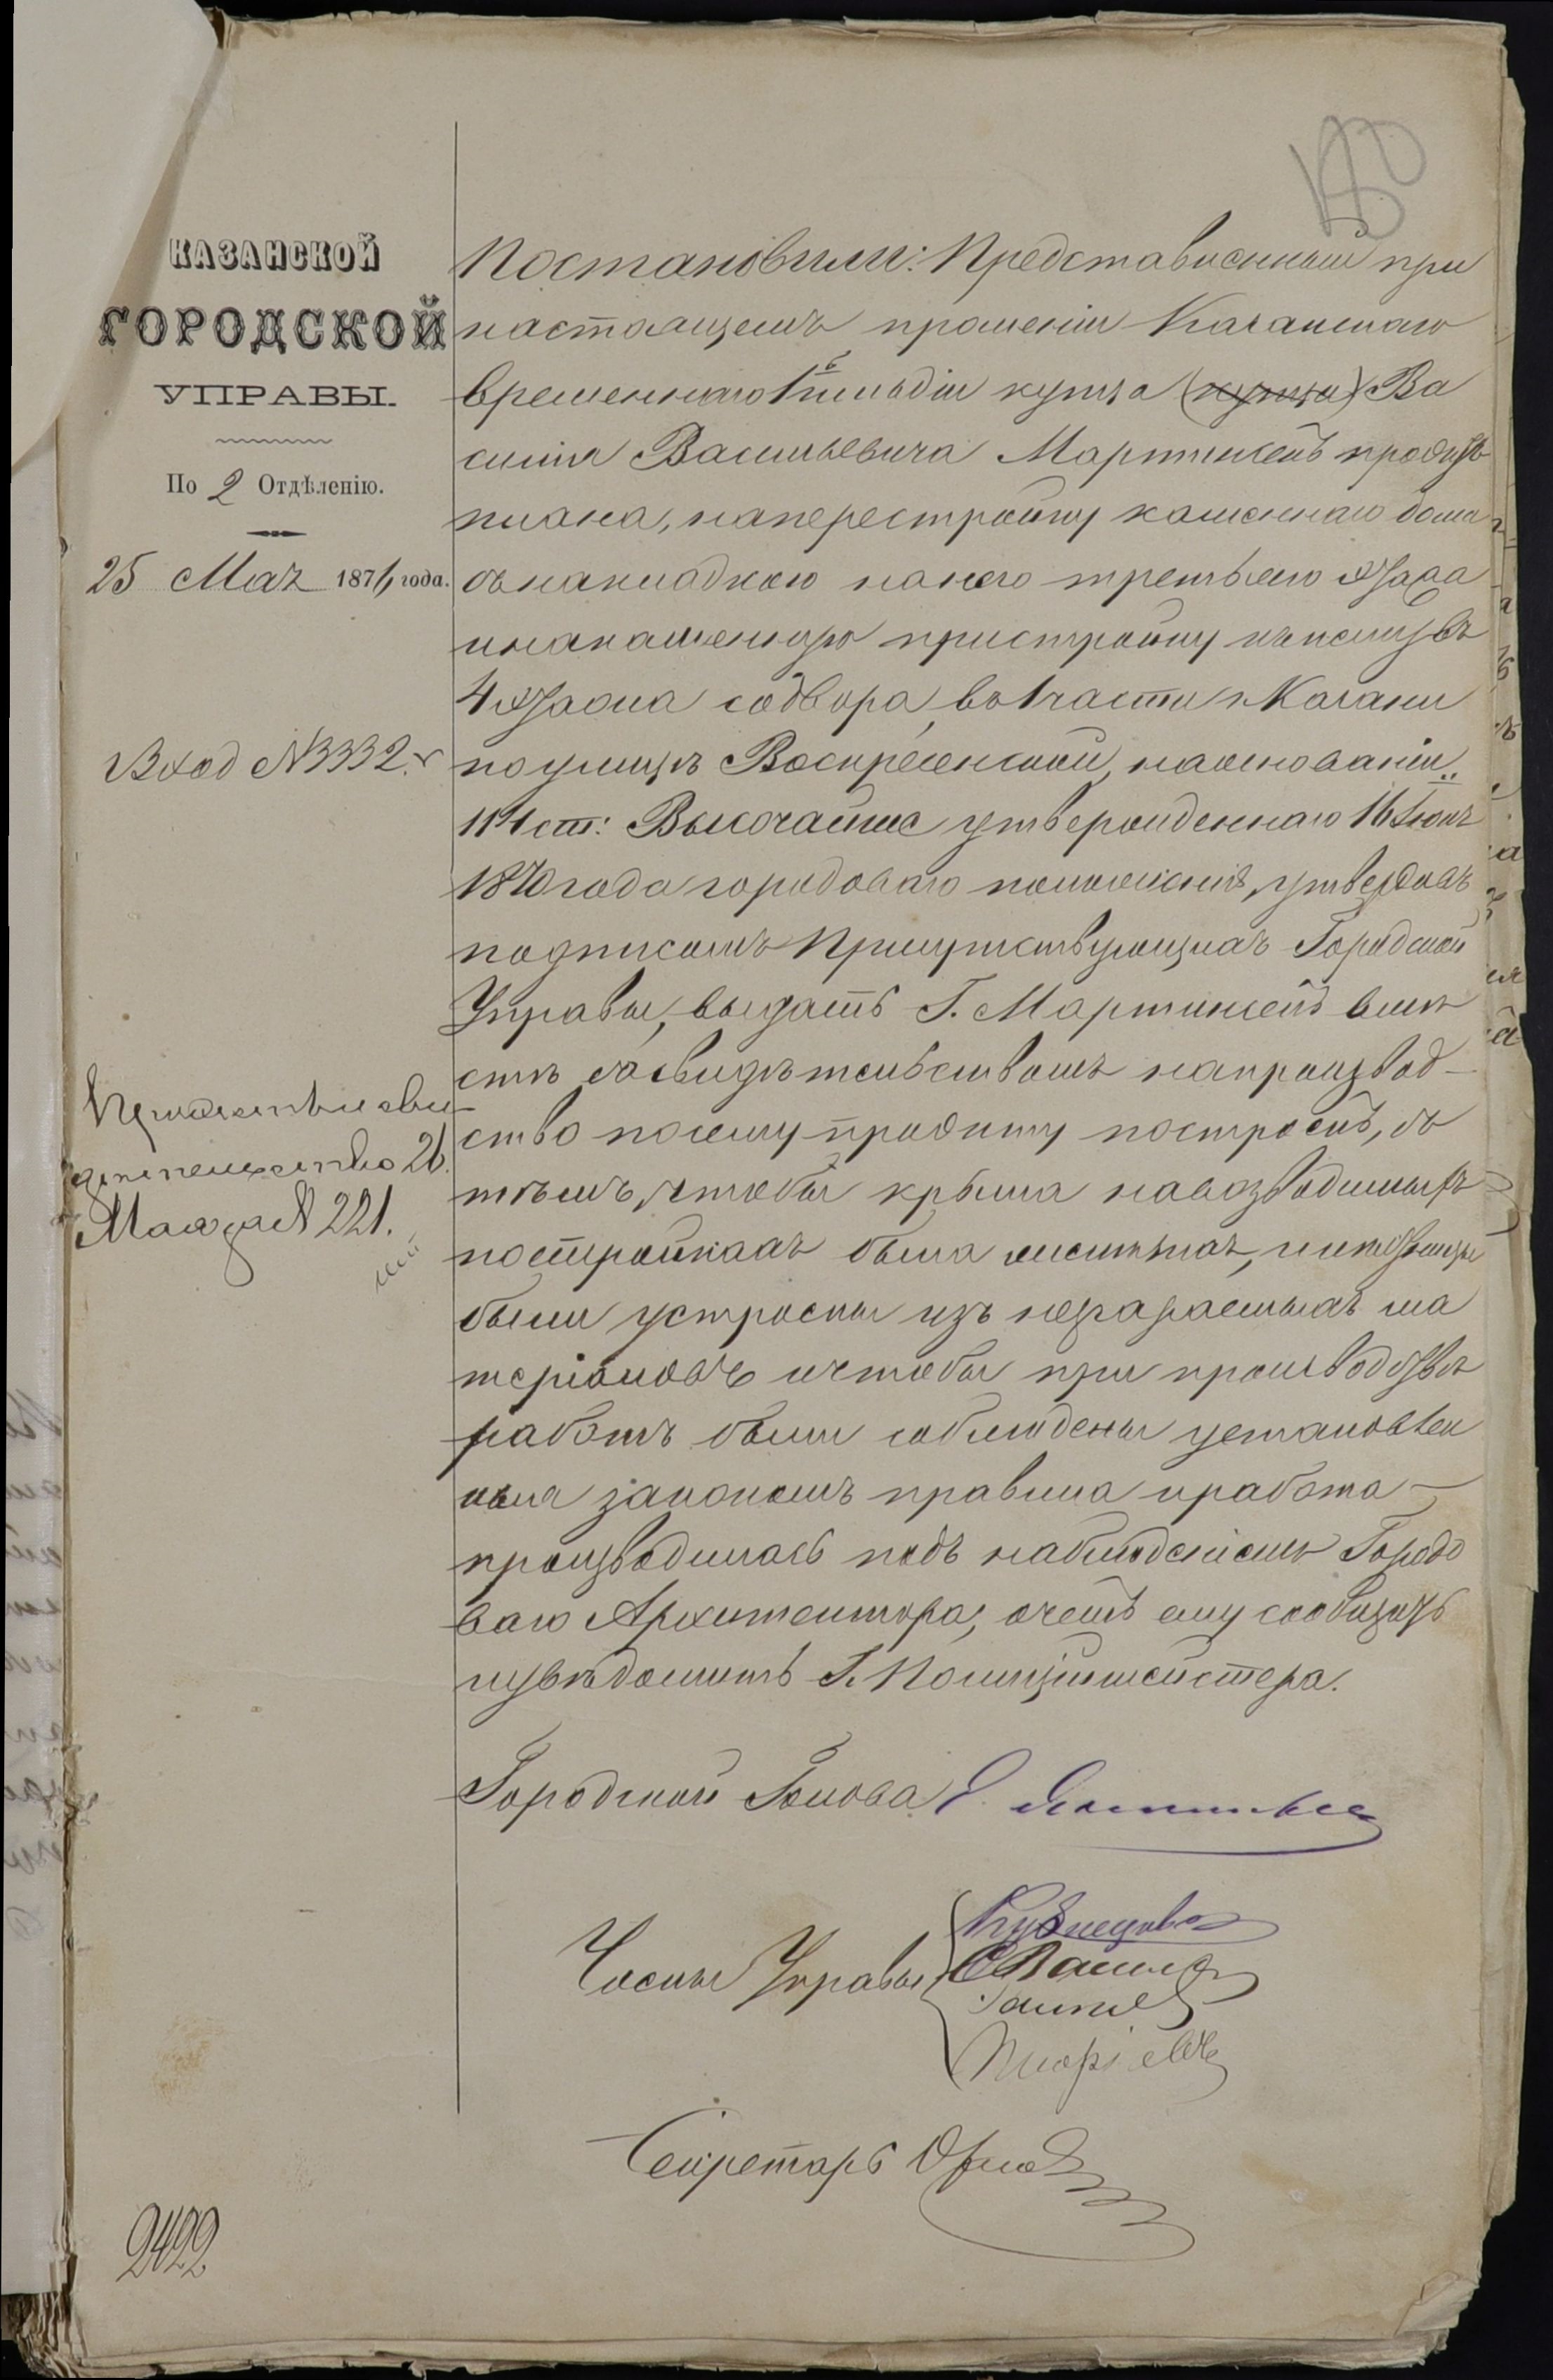 КАЗАНСКОЙ
ГОРОДСКОЙ
УПРАВЫ.
По 2 Отдѣленію.
25 Мая 1871 года.
Вход № 3332.
свидѣтельство 26
Мая за № 221.
Постановили: Представленный при
настоящемъ прошеніи Казанскаго
временнаго 1й гильдіи купца (купца) Ва
силія Васильевича Мартинсенъ проэктъ
плана, на перестройку каменнаго дома
съ накладкою на него третьяго этажа
и на каменную пристройку къ нему въ
4 этажа со двора, въ 1 части г. Казани
по улицѣ Воскресенской, на основаніи
114 ст: Высочайше утвержденнаго 16 Іюня
1870 года городоваго положенія, утвердивъ
подписомъ Присутствующихъ Городской
Управы, выдать Г. Мартинсенъ вмѣ
стѣ со свидѣтельствомъ на производ-
ство по сему проэкту построекъ, съ
тѣмъ, чтобы крыша на возводимыхъ
постройкахъ была
были устроены изъ несгараемыхъ ма
теріаловъ и чтобы при производствѣ
работъ были соблюдены установлен
ныя закономъ правила и работа
производилась подъ наблюденіемъ Городо
ваго Архитектора, о чемъ ему сообщить
и увѣдомить Г. Полиціймейстера.
Городской Голова Е.
Члены Управы
Кузнецовъ
Секретарь Орлов
2422